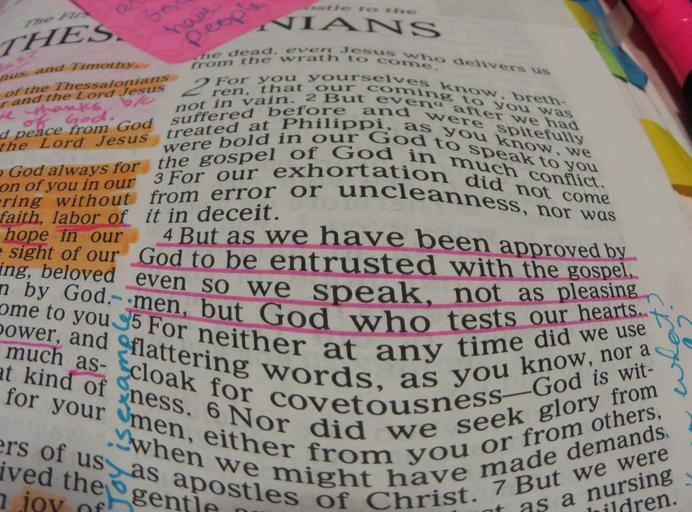 The First
ostle to the
THES
NIANS
have
people
nus, and Timothy,
of the Thessalonians
r and the Lord Jesus
thanks b/c
of God.
d peace from God
the Lord Jesus
God always for
on of you in our
ering without
faith, labor of
hope in our
sight of our
ing, beloved
n by God.
ome to you
power, and
much as-
at kind of
for your
ers of us
ived the
joy of
Joy is example!
the dead, even Jesus who delivers us
from the wrath to come.
2 For you yourselves know, breth-
ren, that our coming to you was
not in vain. 2 But even a after we had
suffered before and were spitefully
treated at Philippi, as you know, we
were bold in our God to speak to you
the gospel of God in much conflict.
3 For our exhortation did not come
from error or uncleanness, nor was
it in deceit.
4 But as we have been approved by
God to be entrusted with the gospel,
even so we speak, not as pleasing
men, but God who tests our hearts.
5 For neither at any time did we use
flattering words, as you know, nor a
cloak for covetousness—God is wit-
ness. 6 Nor did we seek glory from
men, either from you or from others,
when we might have made demands
as apostles of Christ. 7 But we were
gentle
as a nursing
children.
what?